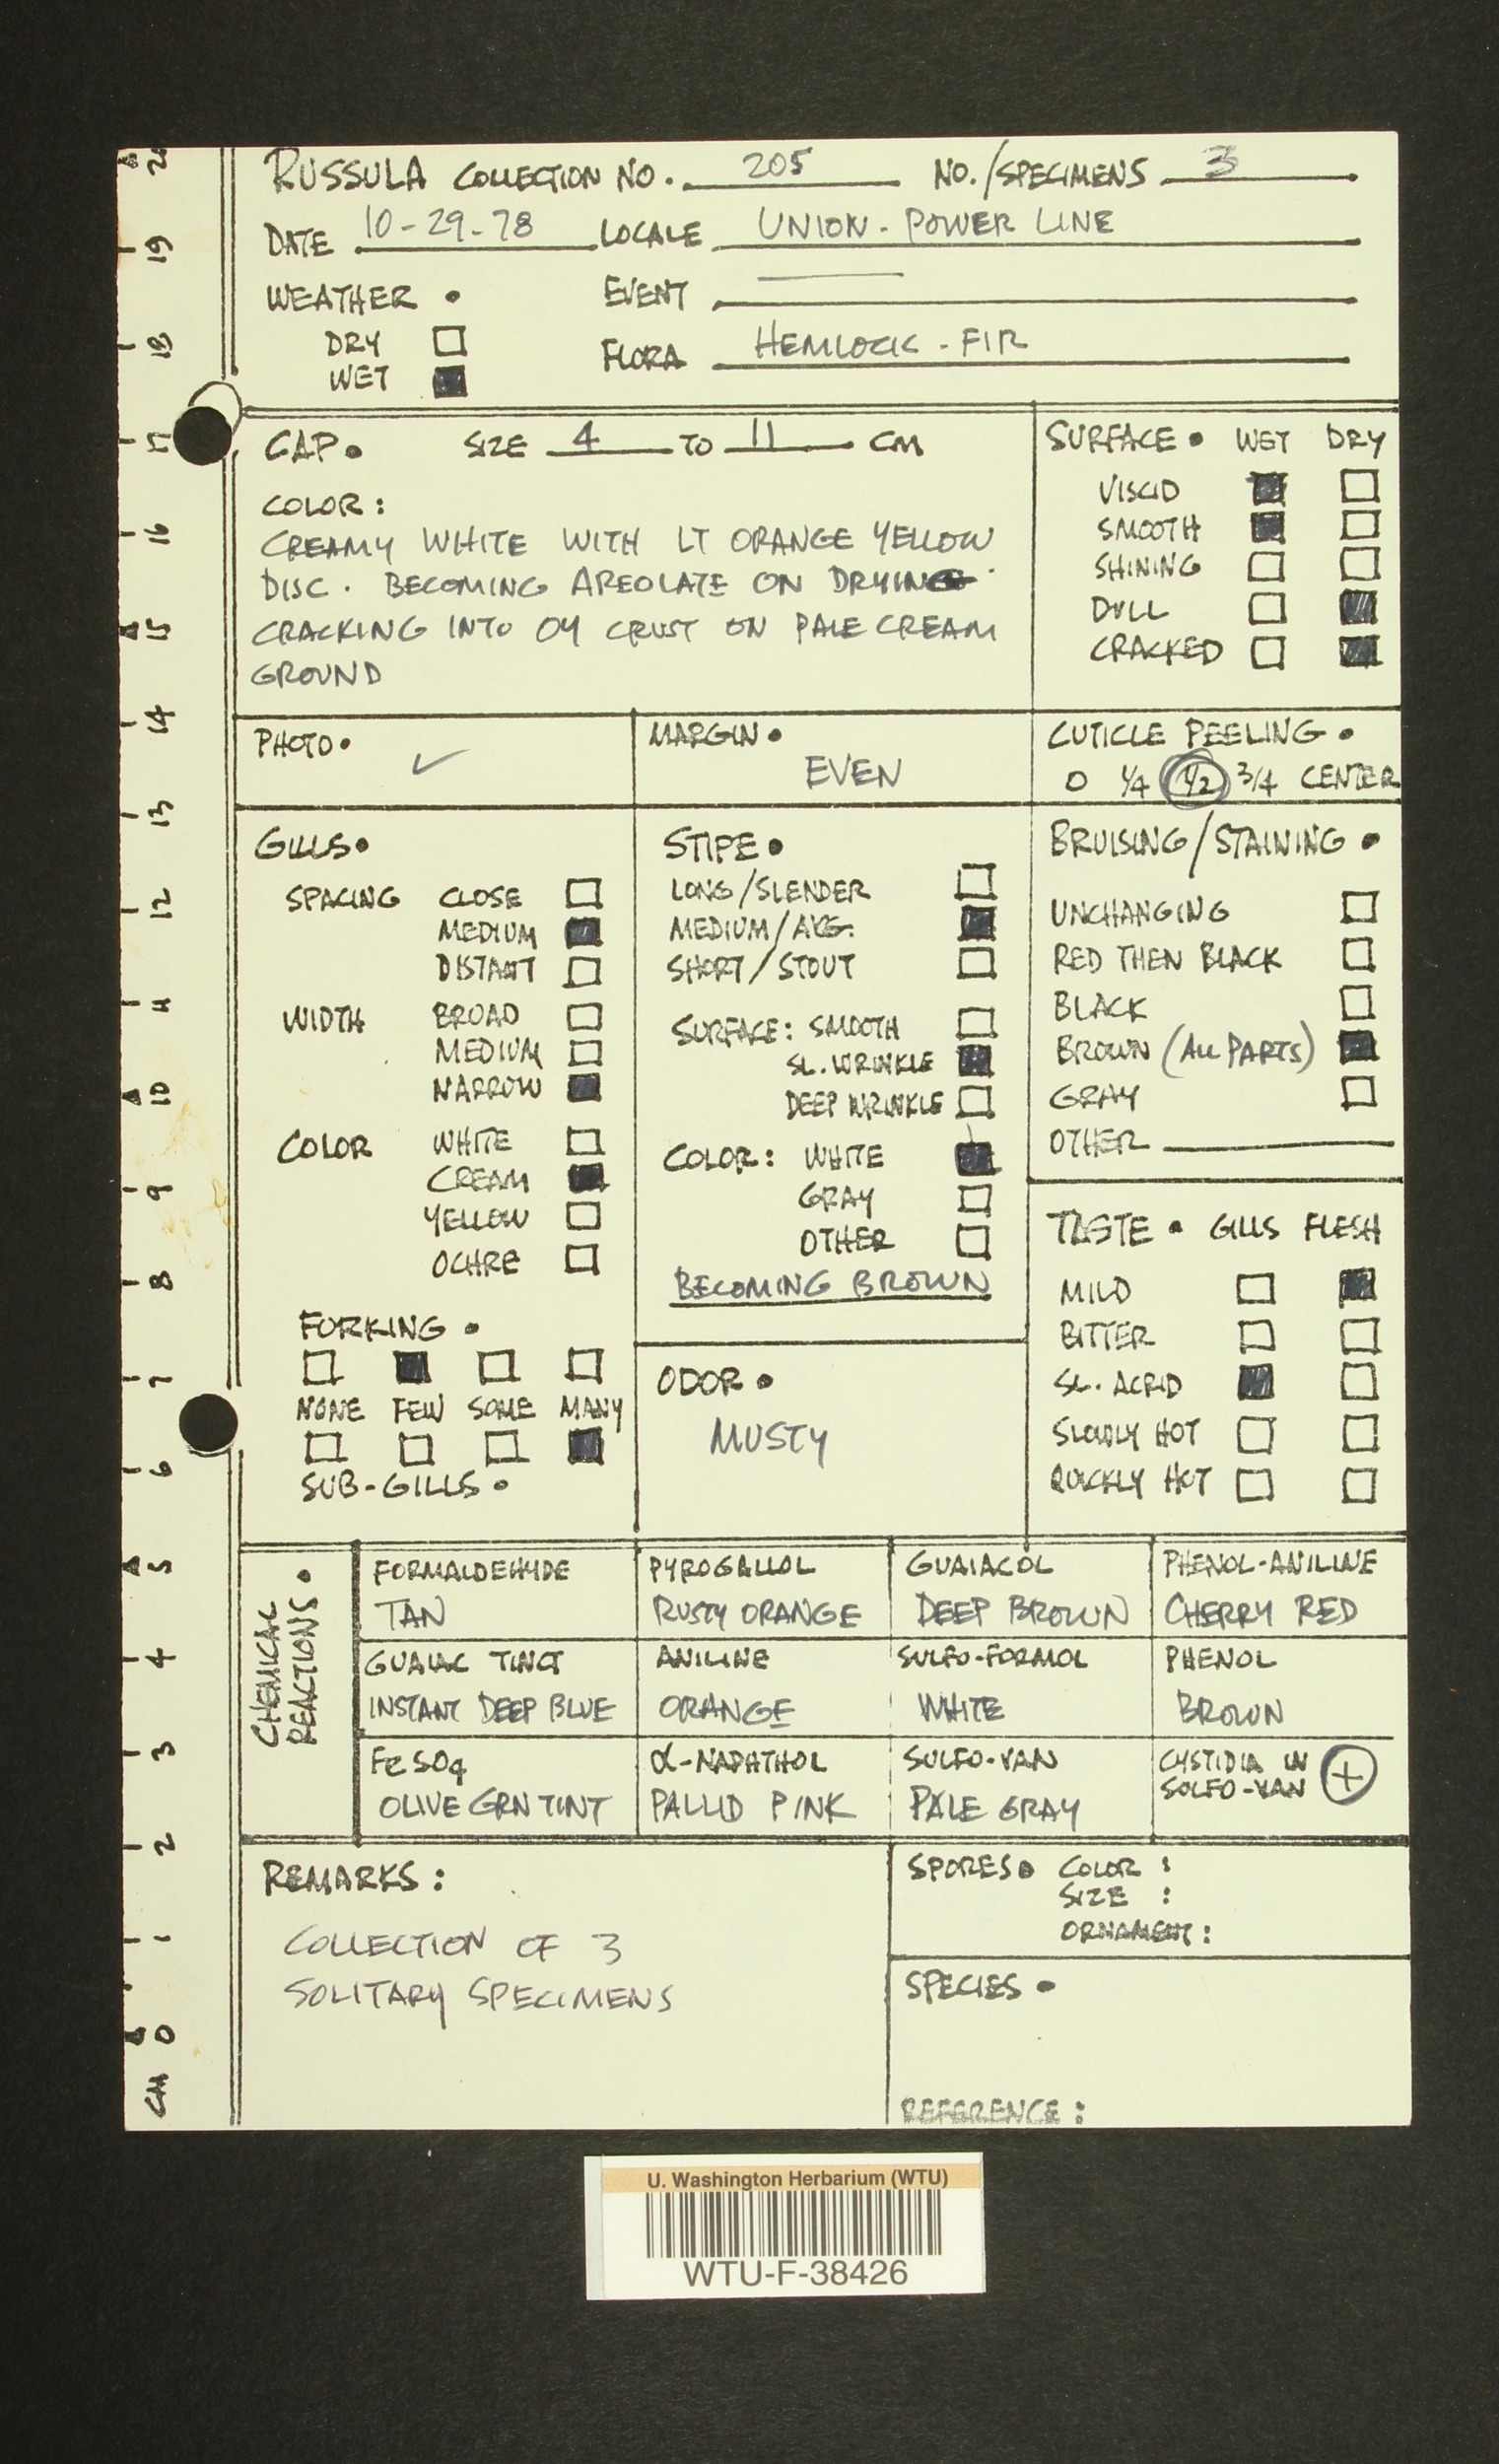 RUSSULA COLLECTION NO. 205 NO./SPECIMENS 3
DATE 10-29-78 LOCALE UNION - POWER LINE
WEATHER • EVENT
DRY
FLORA HEMLOCK - FIR
WET
CAP • SIZE 4 TO 11 CM
COLOR:
CREAMY WHITE WITH LT ORANGE YELLOW
DISC. BECOMING AREOLATE ON DRYING
CRACKING INTO OY CRUST ON PALE CREAM
GROUND
SURFACE • WET DRY
VISCID
SMOOTH
SHINING
DULL
CRACKED
PHOTO • ✓
MARGIN •
EVEN
CUTICLE PEELING •
0 1/4 1/2 3/4 CENTER
GILLS •
SPACING CLOSE
MEDIUM
DISTANT
WIDTH BROAD
MEDIUM
NARROW
COLOR WHITE
CREAM
YELLOW
OCHRE
FORKING •
NONE FEW SOME MANY
SUB-GILLS •
STIPE •
LONG/SLENDER
MEDIUM/AVG.
SHORT/STOUT
SURFACE: SMOOTH
SL. WRINKLE
DEEP WRINKLE
COLOR: WHITE
GRAY
OTHER
BECOMING BROWN
ODOR •
MUSTY
BRUISING/STAINING •
UNCHANGING
RED THEN BLACK
BLACK
BROWN (ALL PARTS)
GRAY
OTHER
TASTE • GILLS FLESH
MILD
BITTER
SL. ACRID
SLOWLY HOT
QUICKLY HOT
CHEMICAL
REACTIONS •
FORMALDEHYDE PYROGALLOL GUAIACOL PHENOL-ANILINE
TAN RUSTY ORANGE DEEP BROWN CHERRY RED
GUAIAC TINCT ANILINE SULFO-FORMOL PHENOL
INSTANT DEEP BLUE ORANGE WHITE BROWN
FeSO4 α-NAPHTHOL SULFO-VAN CYSTIDIA IN
SULFO-VAN +
OLIVE GRN TINT PALLID PINK PALE GRAY
REMARKS:
COLLECTION OF 3
SOLITARY SPECIMENS
SPORES • COLOR :
SIZE :
ORNAMENT:
SPECIES •
REFERENCE:
CM 0 1 2 3 4 5 6 7 8 9 10 11 12 13 14 15 16 17 18 19 20
U. Washington Herbarium (WTU)
WTU-F-38426